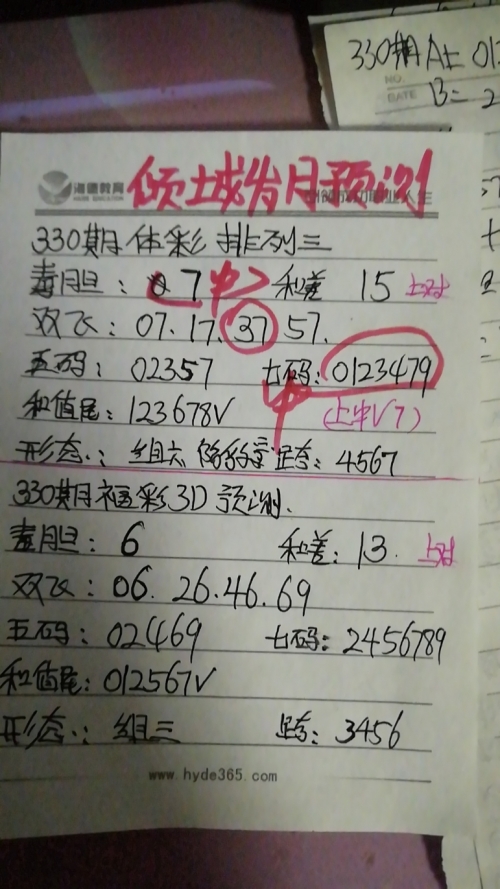 330期A组013
NO.
DATE
B=2
海德教育
倾城岁月预测
330期体彩排列三
毒胆：07中7 和差 15 上对
双飞：07.17.37 57.
五码：02357 七码：0123479
和值尾：123678V 中 (上中V7)
形态：组六 跨：4567
330期福彩3D预测.
毒胆：6 和差：13. 上对
双飞：06.26.46.69
五码：02469 七码：2456789
和值尾：012567V
形态：组三 跨：3456
www.hyde365.com